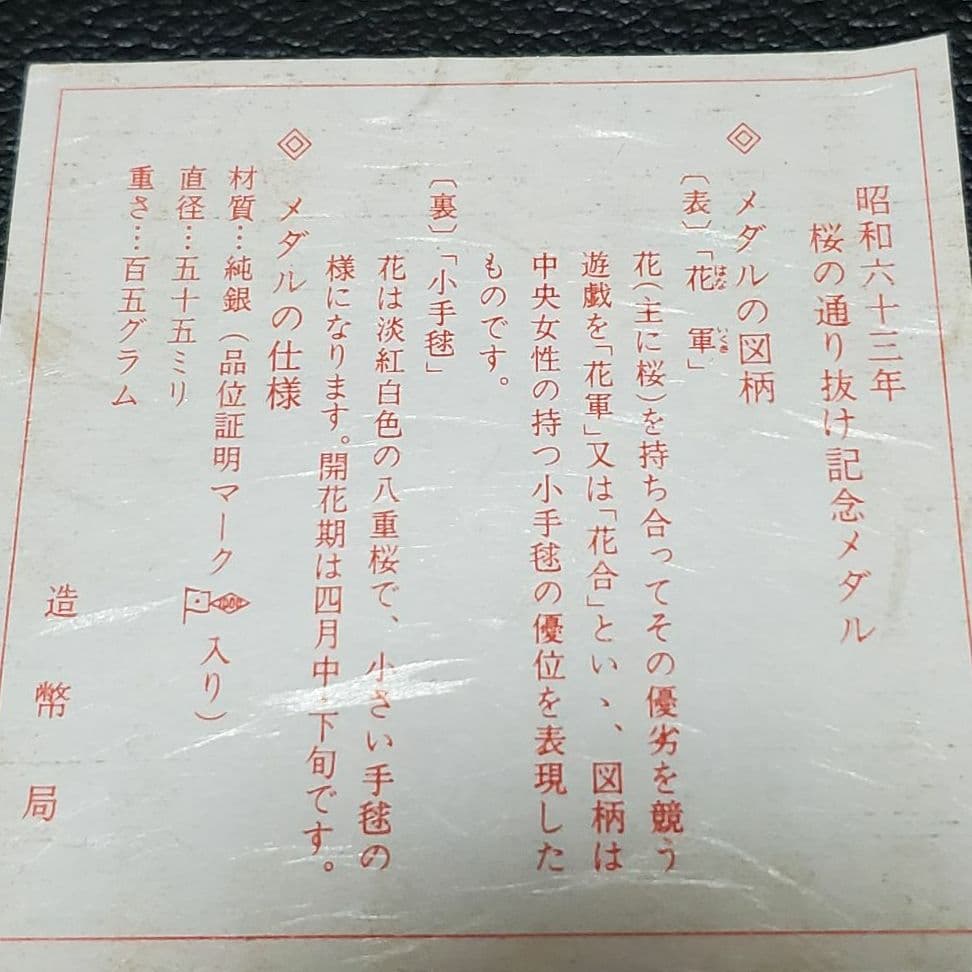 昭和六十三年
桜の通り抜け記念メダル
◈ メダルの図柄
〔表〕「花軍」
はな いくさ
花(主に桜)を持ち合ってその優劣を競う
遊戯を「花軍」又は「花合」といゝ、図柄は
中央女性の持つ小手毬の優位を表現した
ものです。
〔裏〕「小手毬」
花は淡紅白色の八重桜で、小さい手毬の
様になります。開花期は四月中・下旬です。
◈ メダルの仕様
材質…純銀(品位証明マーク 1000 入り)
直径…五十五ミリ
重さ…百五グラム
造幣局